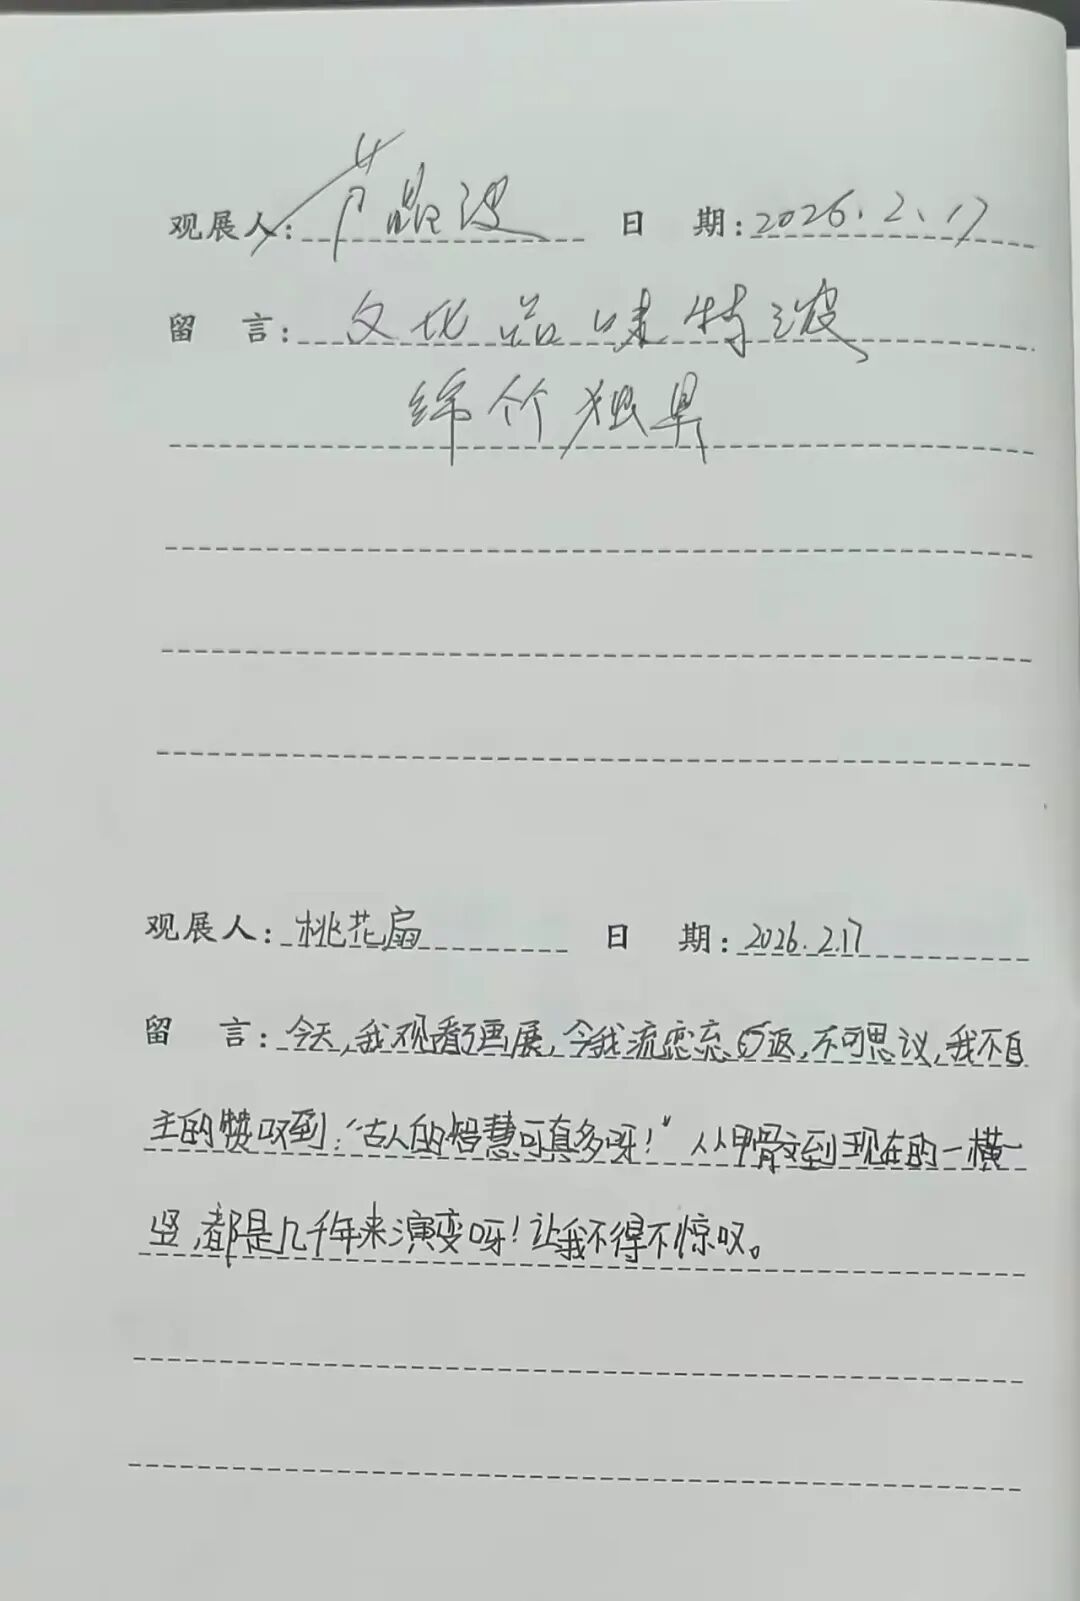 观展人: 日 期: 2026.2.17
留 言: 文化品味特浓
绵竹独具
观展人: 桃花扇 日 期: 2026.2.17
留 言: 今天,我观看了画展,令我流连忘返,不可思议,我不自
主的赞叹到:“古人的智慧可真多呀!”从甲骨文到现在的一横一
竖,都是几千年来演变呀!让我不得不惊叹。